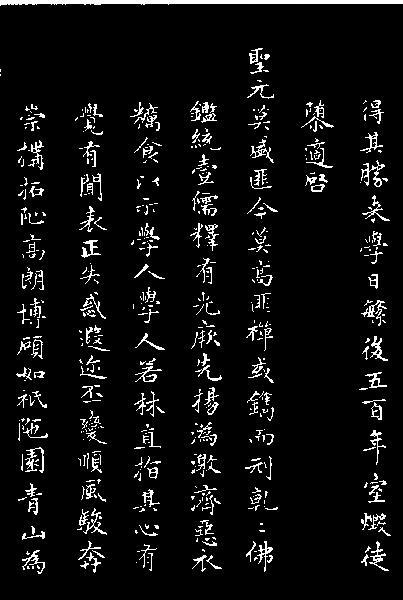 得其勝矣學日繁後五百年室燬徒
陳適啓
聖元莫盛匪今莫高匪禪或鐫而刋乾〻佛
鑑統壹儒釋有光厥先揚溈潡濟惡衣
糲食以示學人學人若林直指其心有
覺有聞表正失惑遐迩丕變順風駿奔
崇構拓阤高朗博碩如祇陁園青山為